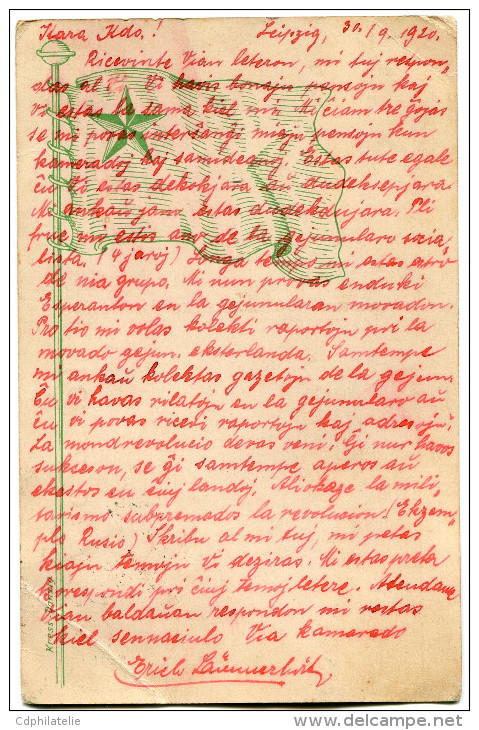 Kara Kdo.! Leipzig, 30./9. 1920.
Ricevinte Vian leteron, mi tuj respon„
das al Vi. Vi havis bonajn pensojn kaj
vi estas la sama kiel mi. Mi ĉiam tre ĝojas
se mi povas interŝanĝi miajn pensojn kun
kameradoj kaj samideanoj. Estas tute egale
ĉu Vi estas dekokjara aŭ dudeksepjara
Mi ankaŭ estas jara. Pli
frue mi estis ano de la gejunularo socia„
lista. (4 jaroj) tempo mi estas
de nia grupo. Mi nun provas enduki
Esperanton en la gejunularan movadon.
Pro tio mi volas kolekti raportojn pri la
movado gejun. eksterlanda. Samtempe
mi ankaŭ kolektas gazetojn de la gejun.
Ĉu Vi havas rilatojn en la gejunularo aŭ
ĉu vi povas ricevi raportojn kaj adresojn?
La mondrevolucio devas veni! Ĝi nur havos
sukceson, se ĝi samtempe aperos aŭ
ekestos en ĉiuj landoj. Aliokaze la mili„
tarismo subpremados la revolucion! (Ekzem„
plo Rusio) Skribu al mi tuj, mi petas
kiajn temojn Vi deziras. Mi estas preta
korespondi pri ĉiuj temoj letere. Atendante
Vian baldaŭan respondon mi restas
kiel sennaciulo Via kamerado
Erich
Cdphilatelie
www.delcampe.net